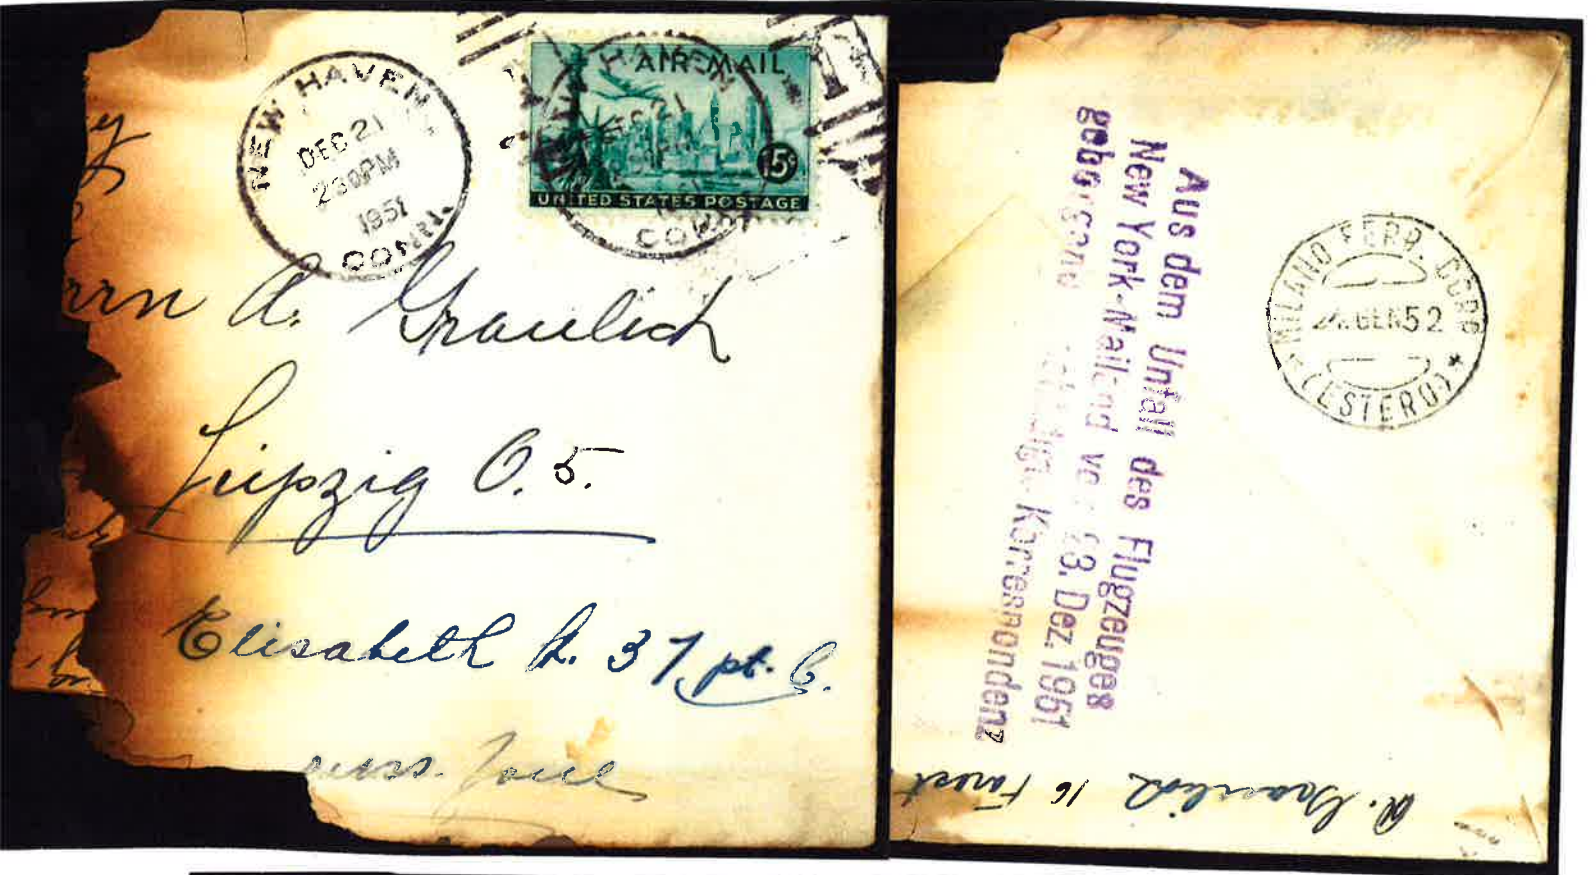 NEW HAVEN
DEC 21
2 30 PM
1951
CONN.
NEW HAVEN
DEC 21
CONN.
AIR MAIL
15¢
UNITED STATES POSTAGE
y
rrn A. Graulich
Leipzig O. 5.
Elisabeth 37 pt.
Aus dem Unfall des Flugzeuges
New York-Mailand vom 23. Dez. 1951
geborgene Korrespondenz
MILANO FERR. CORR
GEN 52
(ESTERO)
A. Graulich 16 Forest